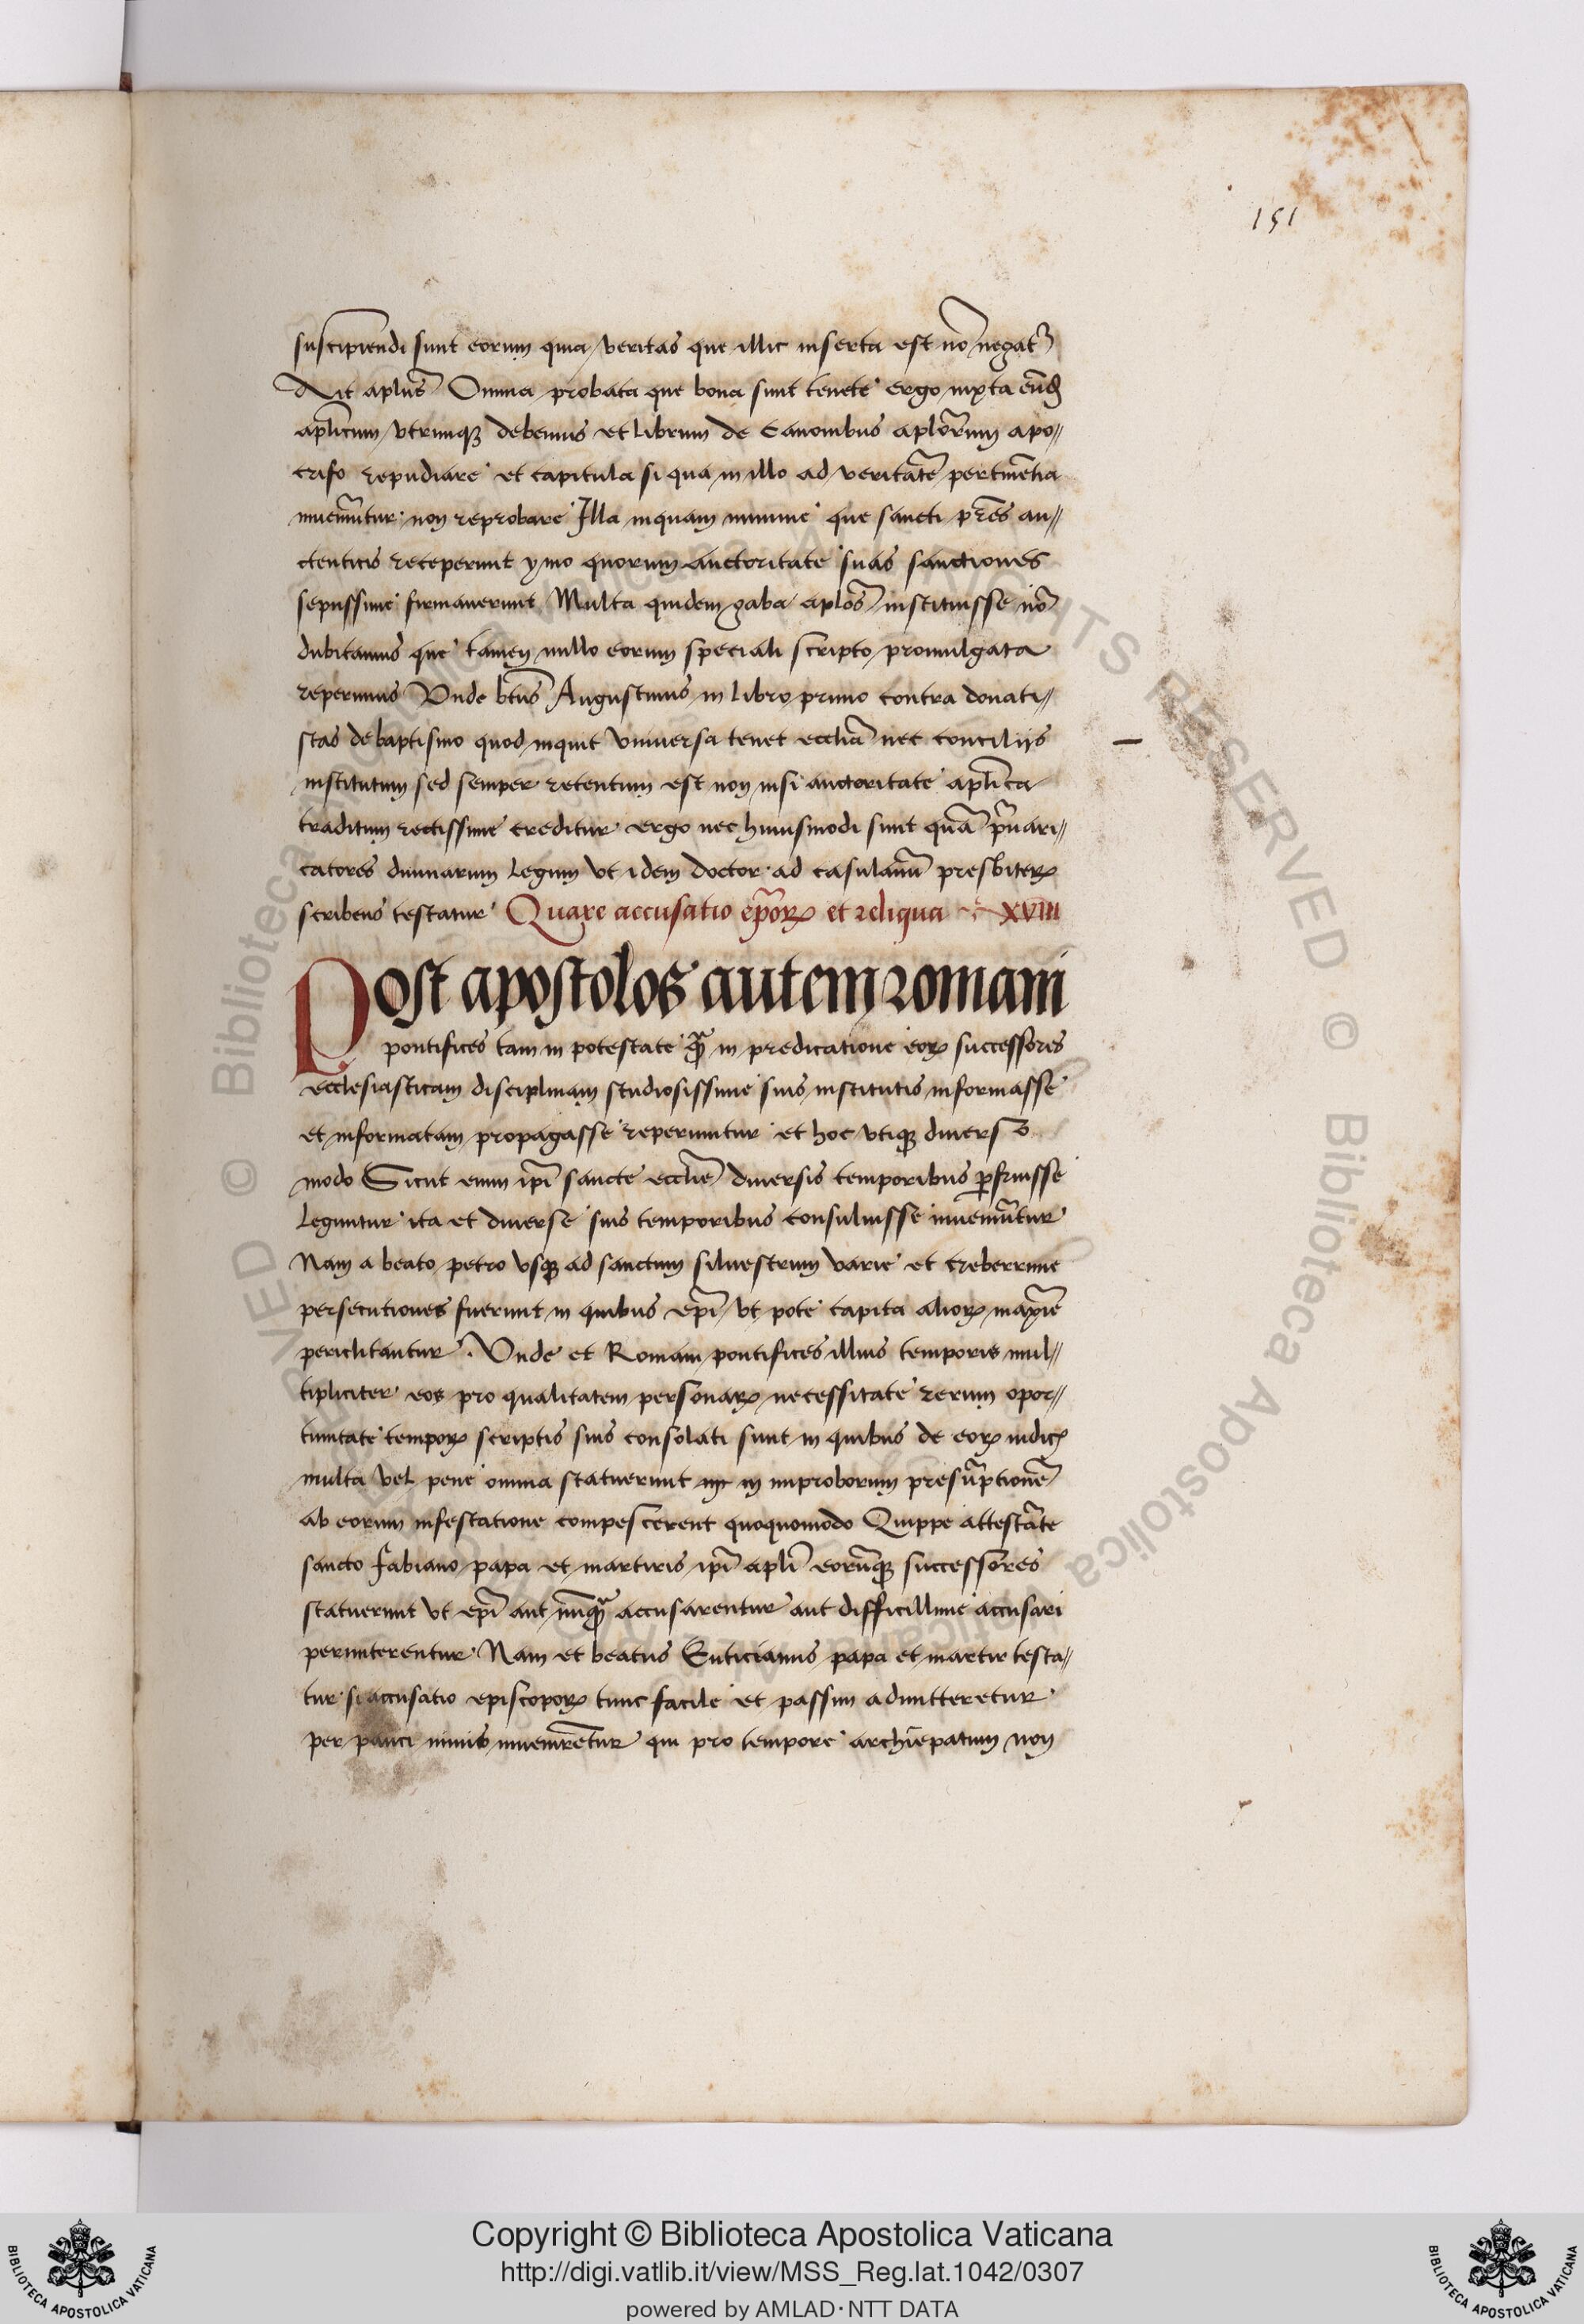 151
suscipiendi sunt eorum quia veritas que illic inserta est nō negat᷑
Ait aplūs Omnia probata que bona sunt tenete ergo iuxta eūd
aplicum utrunqꝫ debemus et librum de Canonibus aplōrum apo〃
crifo repudiare et capitula si qua in illo ad veritatē pertinētia
inueniūtur non reprobare Illa inquam minime que sancti pr̄es au〃
ctenticis receperunt ymo quorum auctoritate suas sanctiones
sepissime firmauerunt Multa quidem gaba aplōs instituisse nō
dubitamus que tamen nullo eorum speciali scripto promulgata
reperimus Unde btūs Augustinus in libro primo contra donati〃
stas de baptismo quod inquit universa tenet eccliā nec conciliis
institutum sed semper retentum est non nisi auctoritate aplica
traditum rectissime creditur ergo nec huiusmodi sunt quā p̄uari〃
catores diuinarum legum ut idem doctor ad casulanū presbiterꝫ
scribens testatur Quare accusatio ep̄orꝝ et reliqua XVIII
Post apostolos autem romani
pontifices tam in potestate qͣꝫ in predicatione eorꝝ successores
ecclesiasticam disciplinam studiosissime suis institutis informasse
et informatam propagasse reperiuntur et hoc utiqꝫ diverso
modo Sicut enim ip̄i sancte ecclie diuersis temporibus p̄fuisse
leguntur ita et diuerse suis temporibus consuluisse inueniūtur
Nam a beato petro usqꝫ ad sanctum siluestrum varie et creberrime
persecutiones fuerunt in quibus ep̄i ut pote capita aliorꝝ maxīe
periclitantur. Unde et Romani pontifices illius temporis mul〃
tipliciter eos pro qualitatem personarꝝ necessitate rerum opor〃
tunitate temporꝝ scriptis suis consolati sunt in quibus de eorꝝ
multa vel pene omnia statuerunt in improborum presūptionē
ab eorum infestatione compescerent quoquomodo Quippe attestāte
sancto Fabiano papa et martiris ip̄i apli eorūqꝫ successores
statuerunt ut ep̄i aut nūqͣꝫ accusarentur aut difficillime accusari
perimterentur Nam et beatus Euticianus papa et martir testa〃
tur si accusatio episcoporꝝ tunc facile et passim admitteretur
per pauci nimis inuenirētur qui pro tempore archiep̄atum non
Copyright © Biblioteca Apostolica Vaticana
http://digi.vatlib.it/view/MSS_Reg.lat.1042/0307
powered by AMLAD·NTT DATA